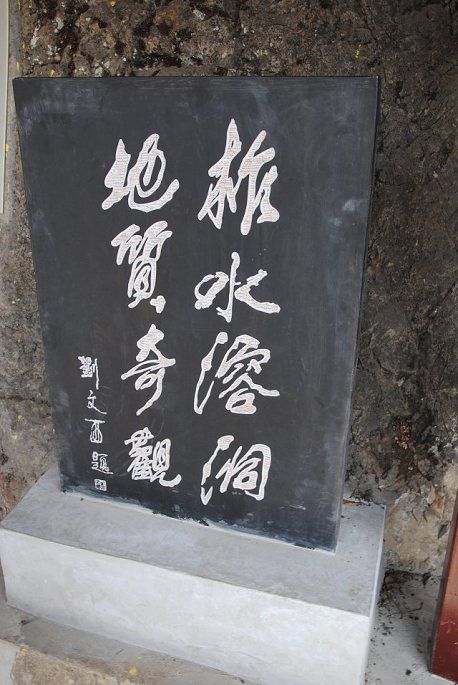 柞水溶洞
地質奇觀
劉文西題